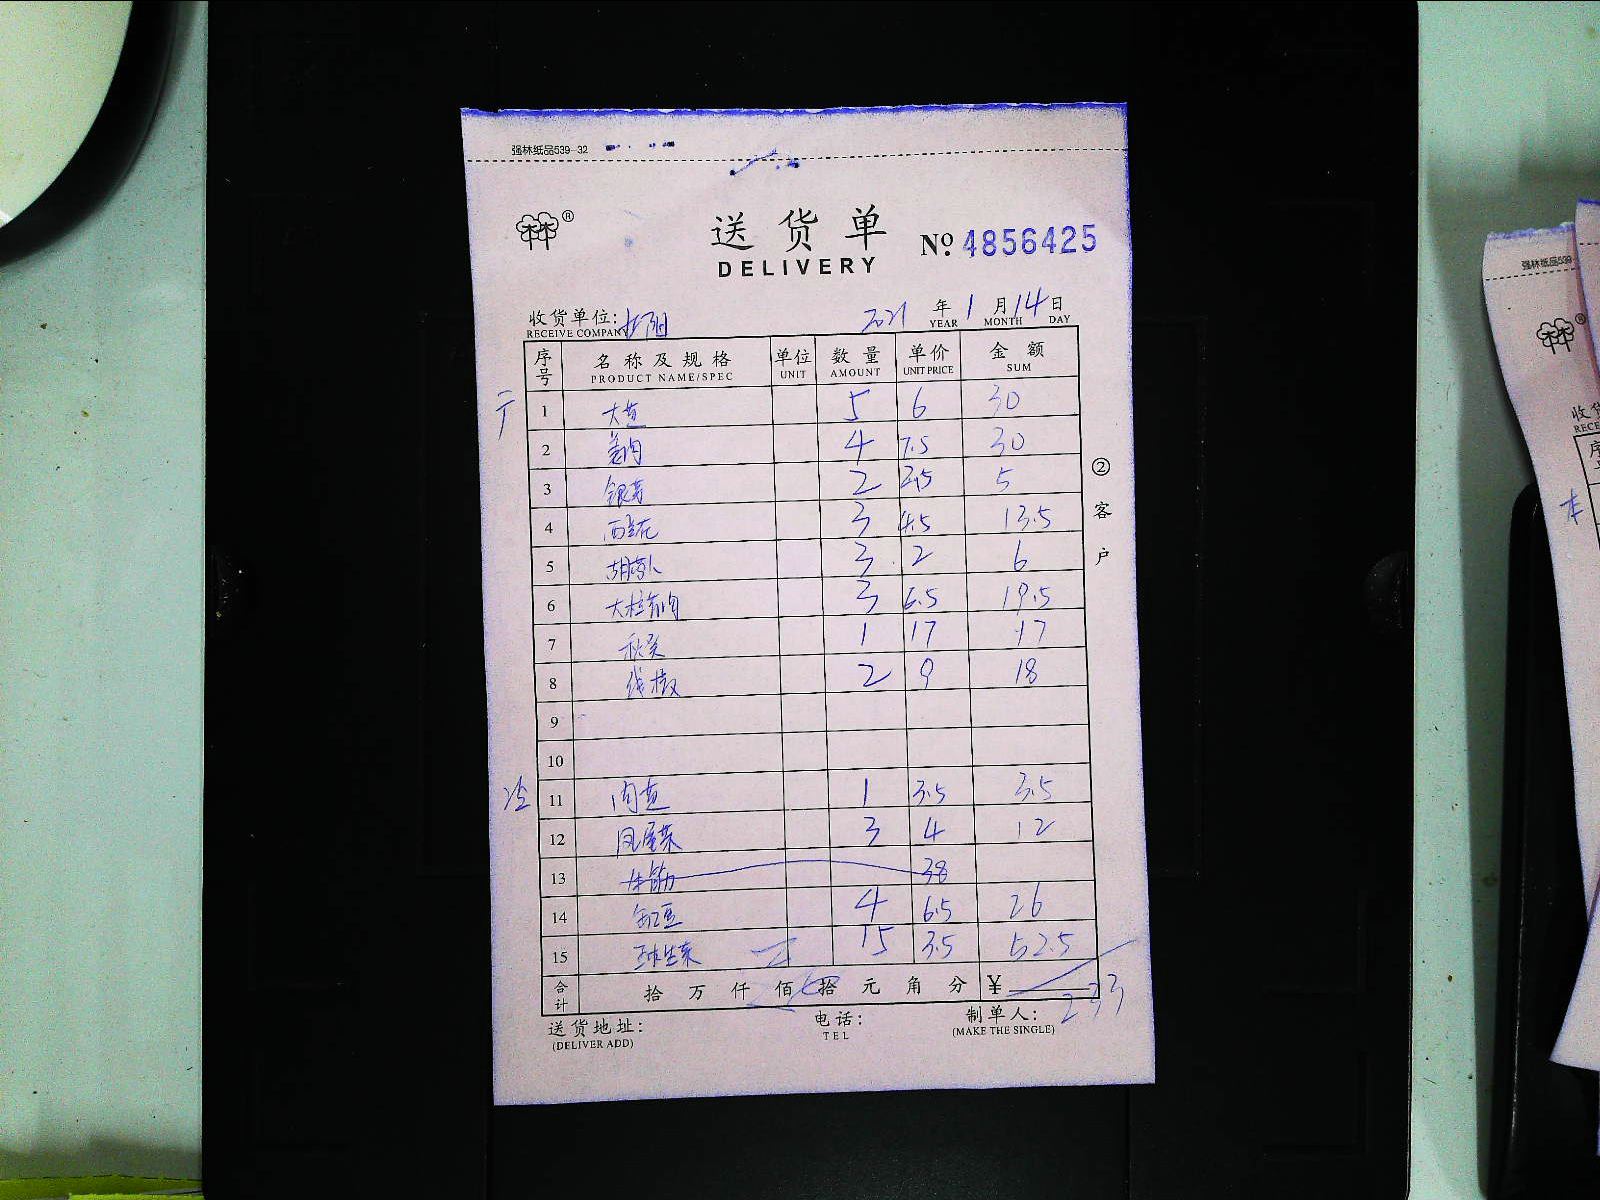 强林纸品539-32
送货单
DELIVERY
No. 4856425
收货单位:
RECEIVE COMPANY
2021 年 1 月 14 日
YEAR MONTH DAY
序号 名称及规格 单位 数量 单价 金额
PRODUCT NAME/SPEC UNIT AMOUNT UNIT PRICE SUM
1 大鱼 5 6 30
2 姜肉 4 7.5 30
3 银芽 2 2.5 5
4 西兰花 3 4.5 13.5
5 胡萝卜 3 2 6
6 3 6.5 19.5
7 秋葵 1 17 17
8 线椒 2 9 18
9
10
11 1 3.5 3.5
12 凤尾菜 3 4 12
13 牛筋 38
14 缸豆 4 6.5 26
15 球生菜 15 3.5 52.5
合计 拾 万 仟 佰 拾 元 角 分 ¥ 233
送货地址: 电话: 制单人:
(DELIVER ADD) TEL (MAKE THE SINGLE)
②客户
强林纸品539